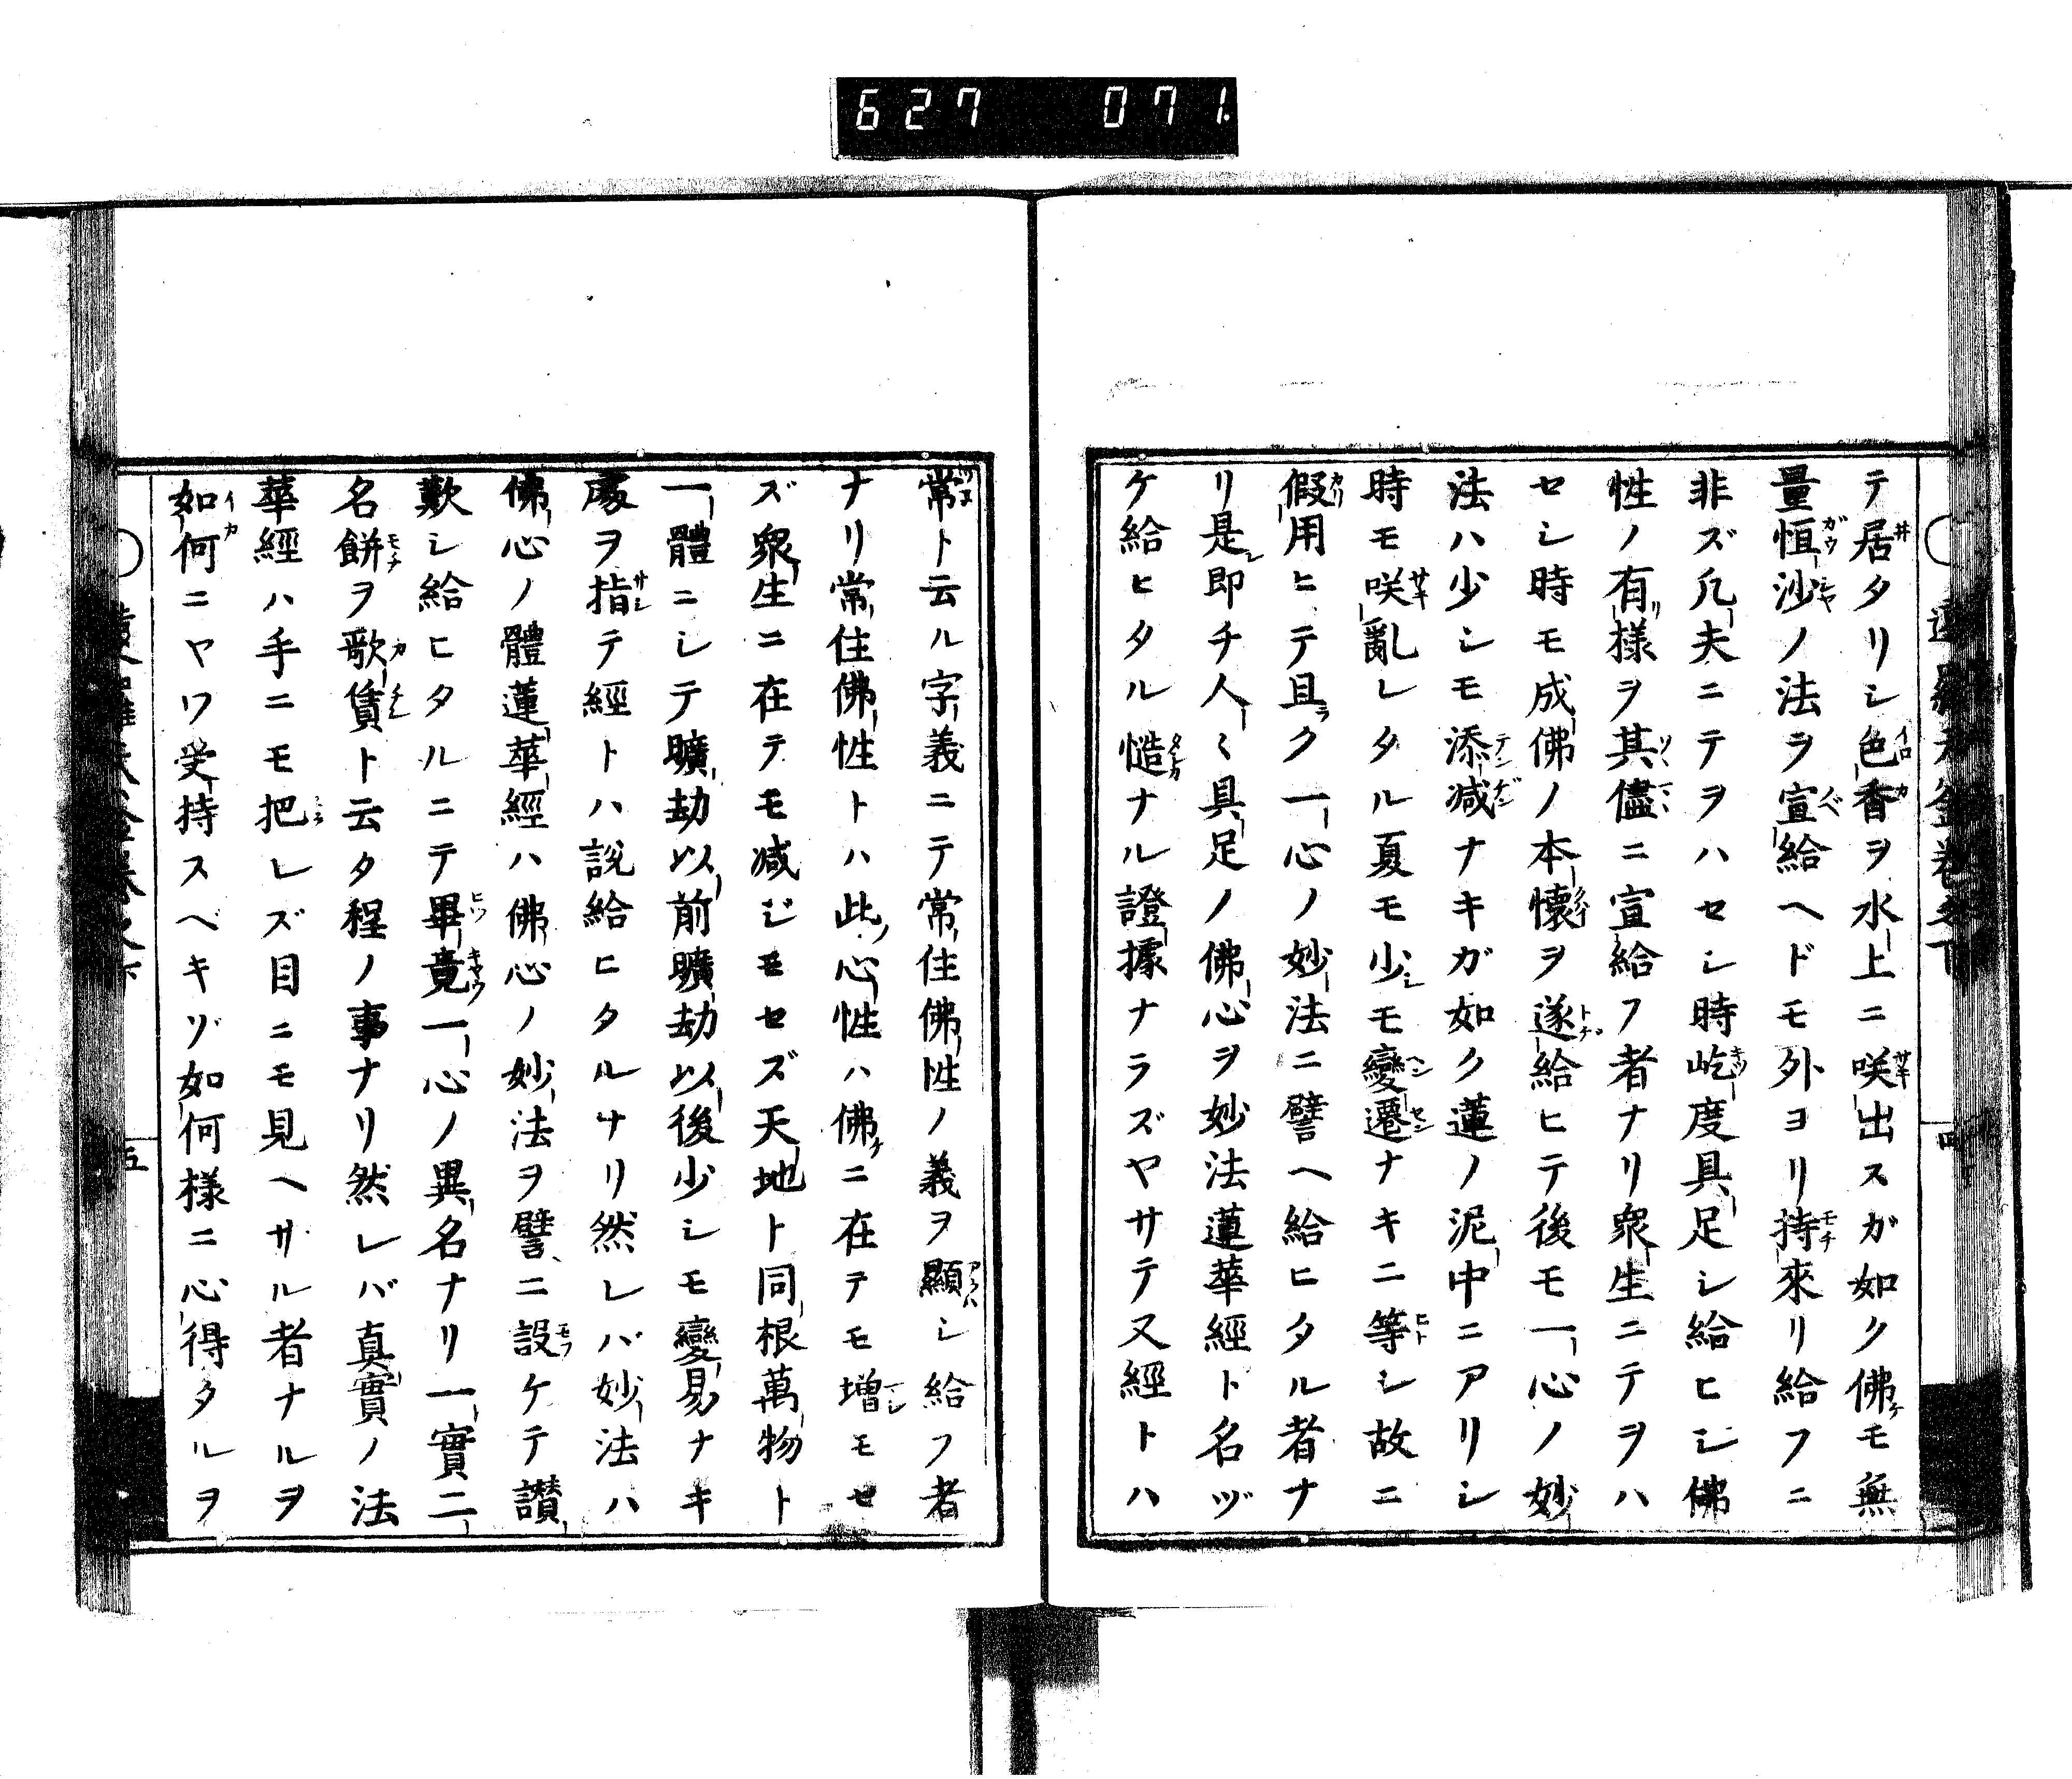 627 071.
テ居タリシ色香ヲ水上ニ咲出スガ如ク佛モ無
量恒沙ノ法ラ宣給ヘドモ外ヨリ持來リ給フニ
非ズ凡夫ニテヲハセシ時屹度具足シ給ヒシ佛
性ノ有様ヲ其儘ニ宣給フ者ナリ衆生ニテヲハ
セシ時モ成佛ノ本懐ヲ遂給ヒテ後モ一心ノ妙
法ハ少シモ添减ナキガ如ク蓮ノ泥中ニアリシ
時モ咲亂レタル夏モ少モ變遷ナキニ等シ故ニ
假用ヒテ且ク一心ノ妙法ニ譬ヘ給ヒタル者ナ
リ是即チ人々具足ノ佛心ヲ妙法蓮華經ト名ヅ
ケ給ヒタル慥ナル證據ナラズヤサテ又經トハ
四
常ト云ル字義ニテ常住佛性ノ義ヲ顯シ給フ者
ナリ常住佛性トハ此心性ハ佛ニ在テモ増モセ
ズ衆生ニ在テモ减ジモセズ天地ト同根萬物ト
一體ニシテ曠劫以前曠劫以後少シモ變易ナキ
處ヲ指テ經トハ説給ヒタルナリ然レバ妙法ハ
佛心ノ體蓮華經ハ佛心ノ妙法ヲ譬ニ設ケテ讃
歎シ給ヒタルニテ畢竟一心ノ異名ナリ一實二
名餅ヲ歌賃ト云タ程ノ事ナリ然レバ真實ノ法
華經ハ手ニモ把レズ目ニモ見ヘサル者ナルヲ
如何ニヤワ受持スベキゾ如何様ニ心得タルヲ
五